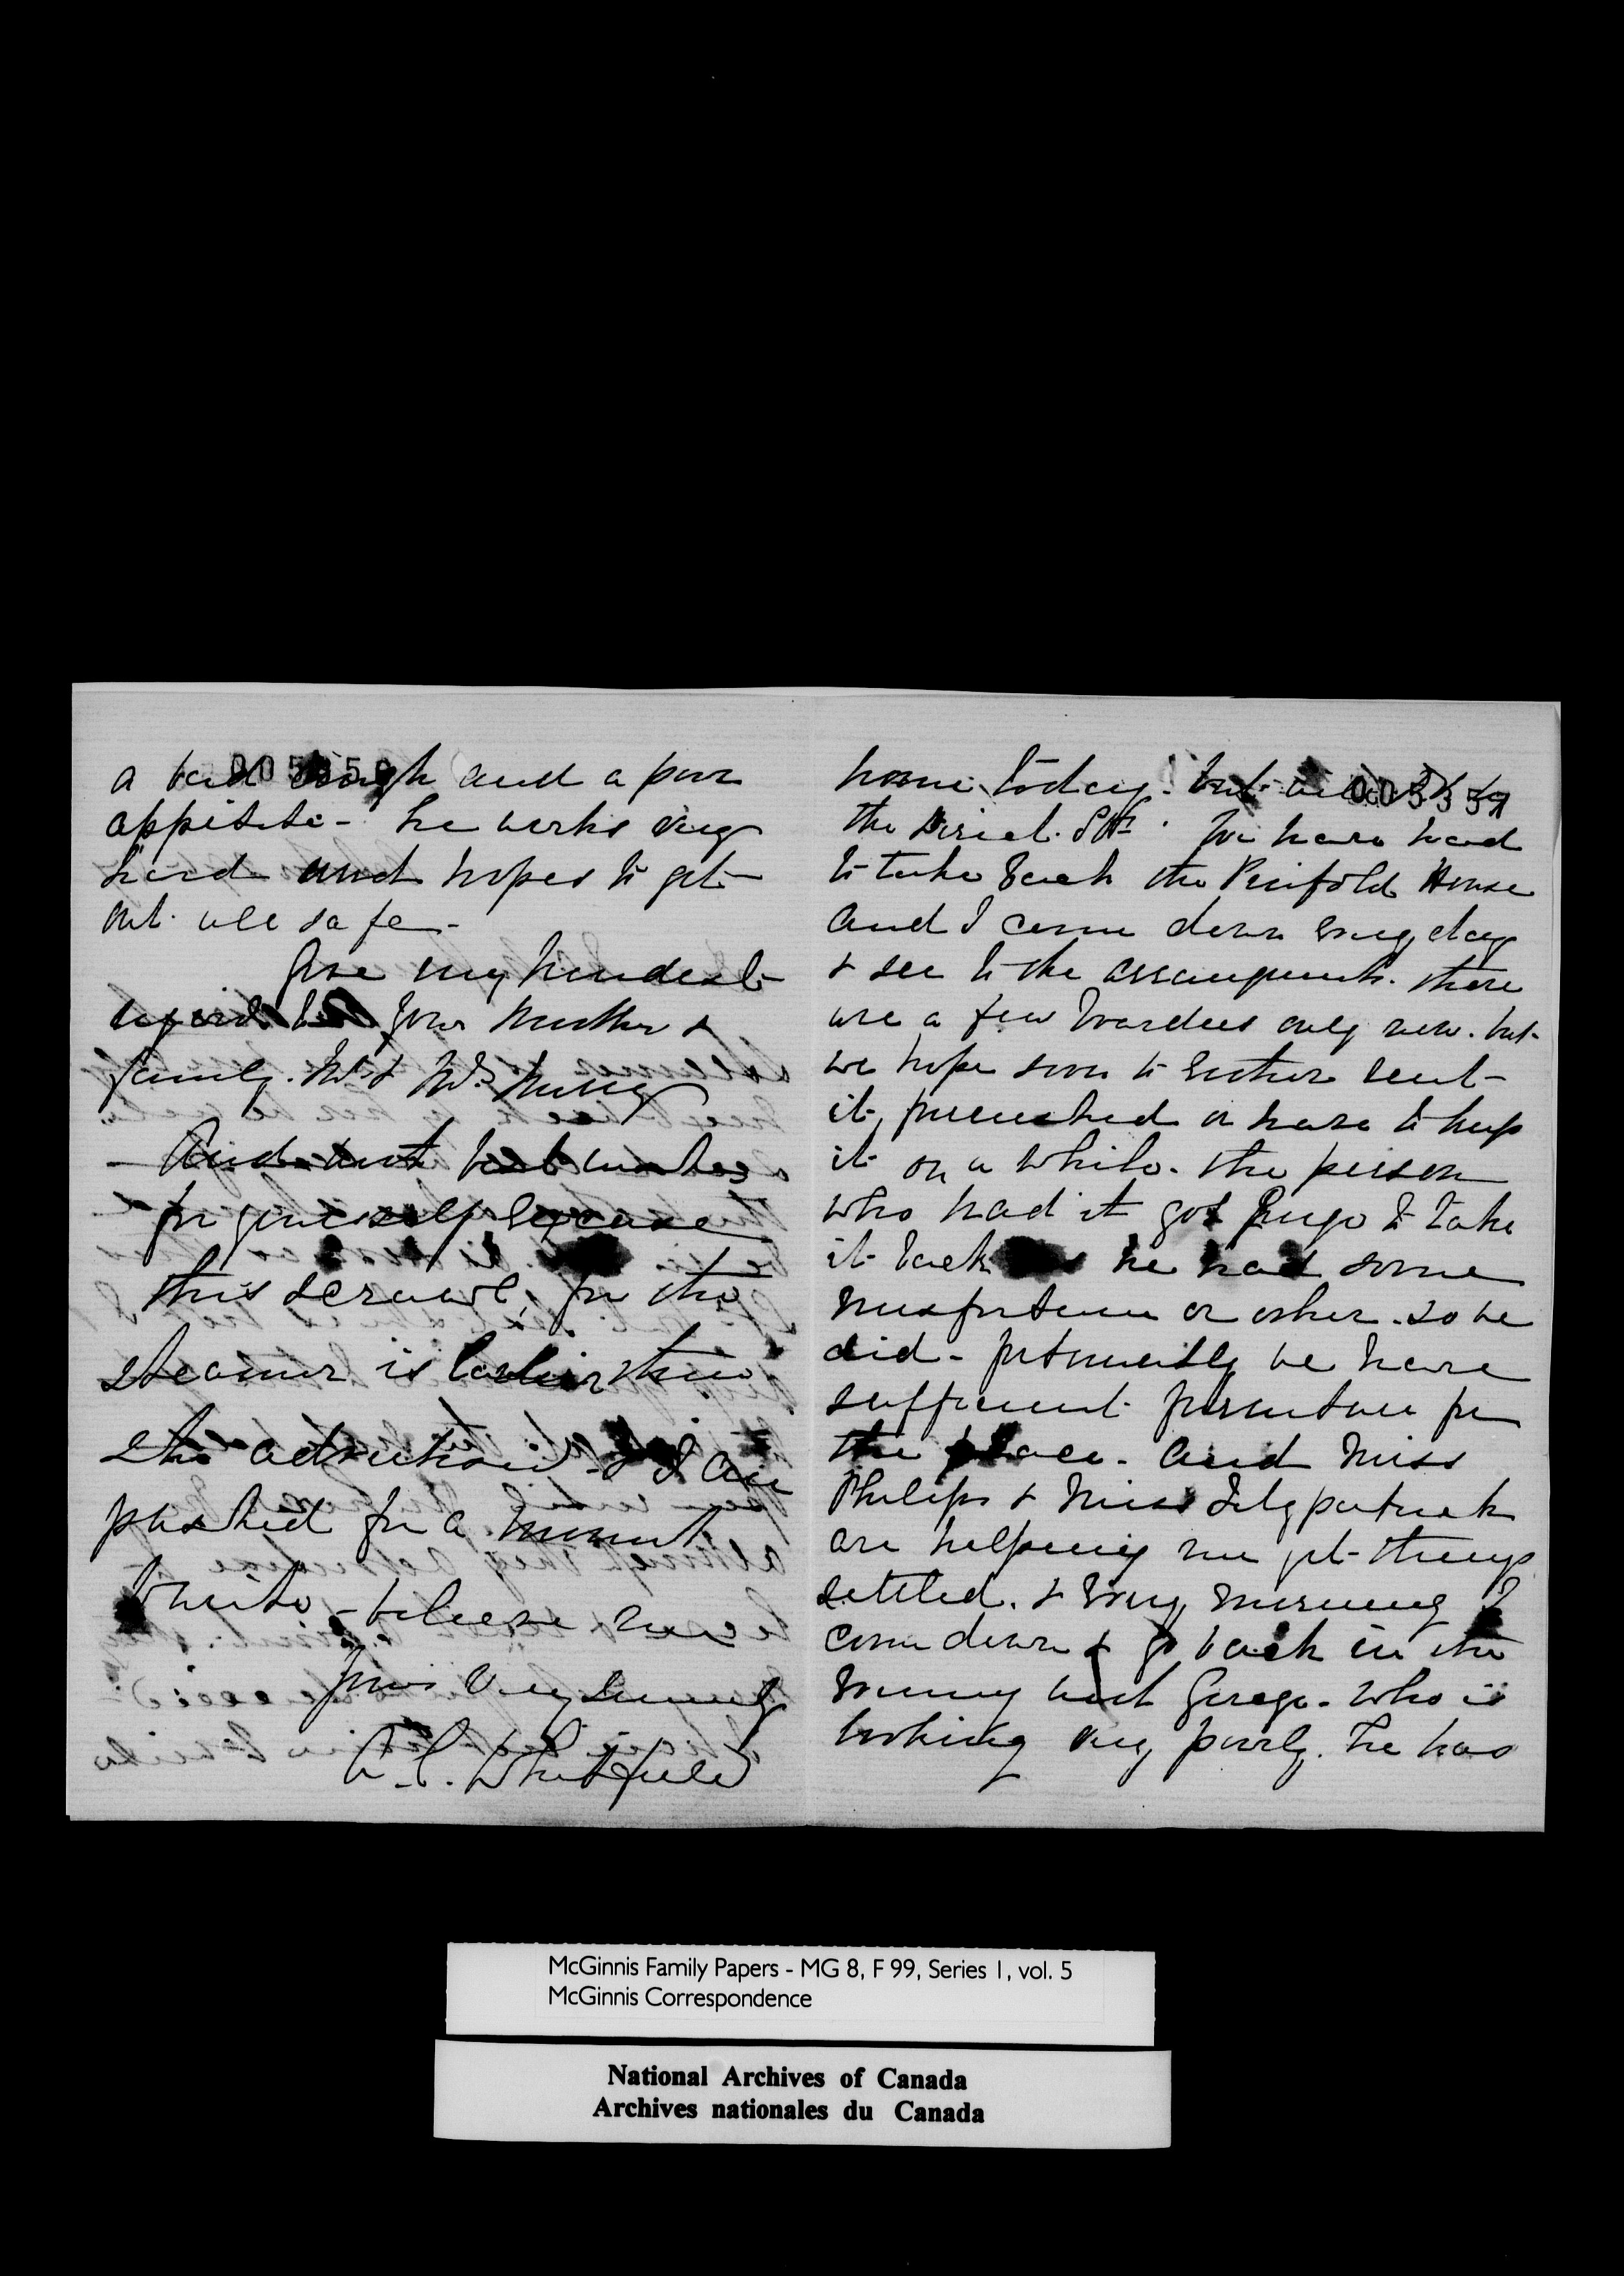 home today. but
the We have had
to take back the Penfold House
and I come down every day
& see to the arrangements. there
are a few boarders only now. but
we hope soon to either rent
it furnished or have to keep
it on a while. the person
who had it got George to take
it back he had some
misfortune or other. so we
did - fortunately we have
sufficient furniture for
the place. and Miss
Philips & Miss Fitzpatrick
are helping me get things
settled. & every morning I
come down & go back in the
evening with George. who is
looking very poorly. he has
005357
a bad cough and a poor
appetite - he works very
hard and hopes to get
out all safe -
Give my kindest
regards to your Mother &
family. Mr & Mrs
- And with best wishes
for yourself excuse
this scrawl, for the
steamer is earlier than
she advertised & I am
pushed for a moment
to write - believe me
Yours very sincerely
A. C. Whitfield
McGinnis Family Papers - MG 8, F 99, Series 1, vol. 5
McGinnis Correspondence
National Archives of Canada
Archives nationales du Canada